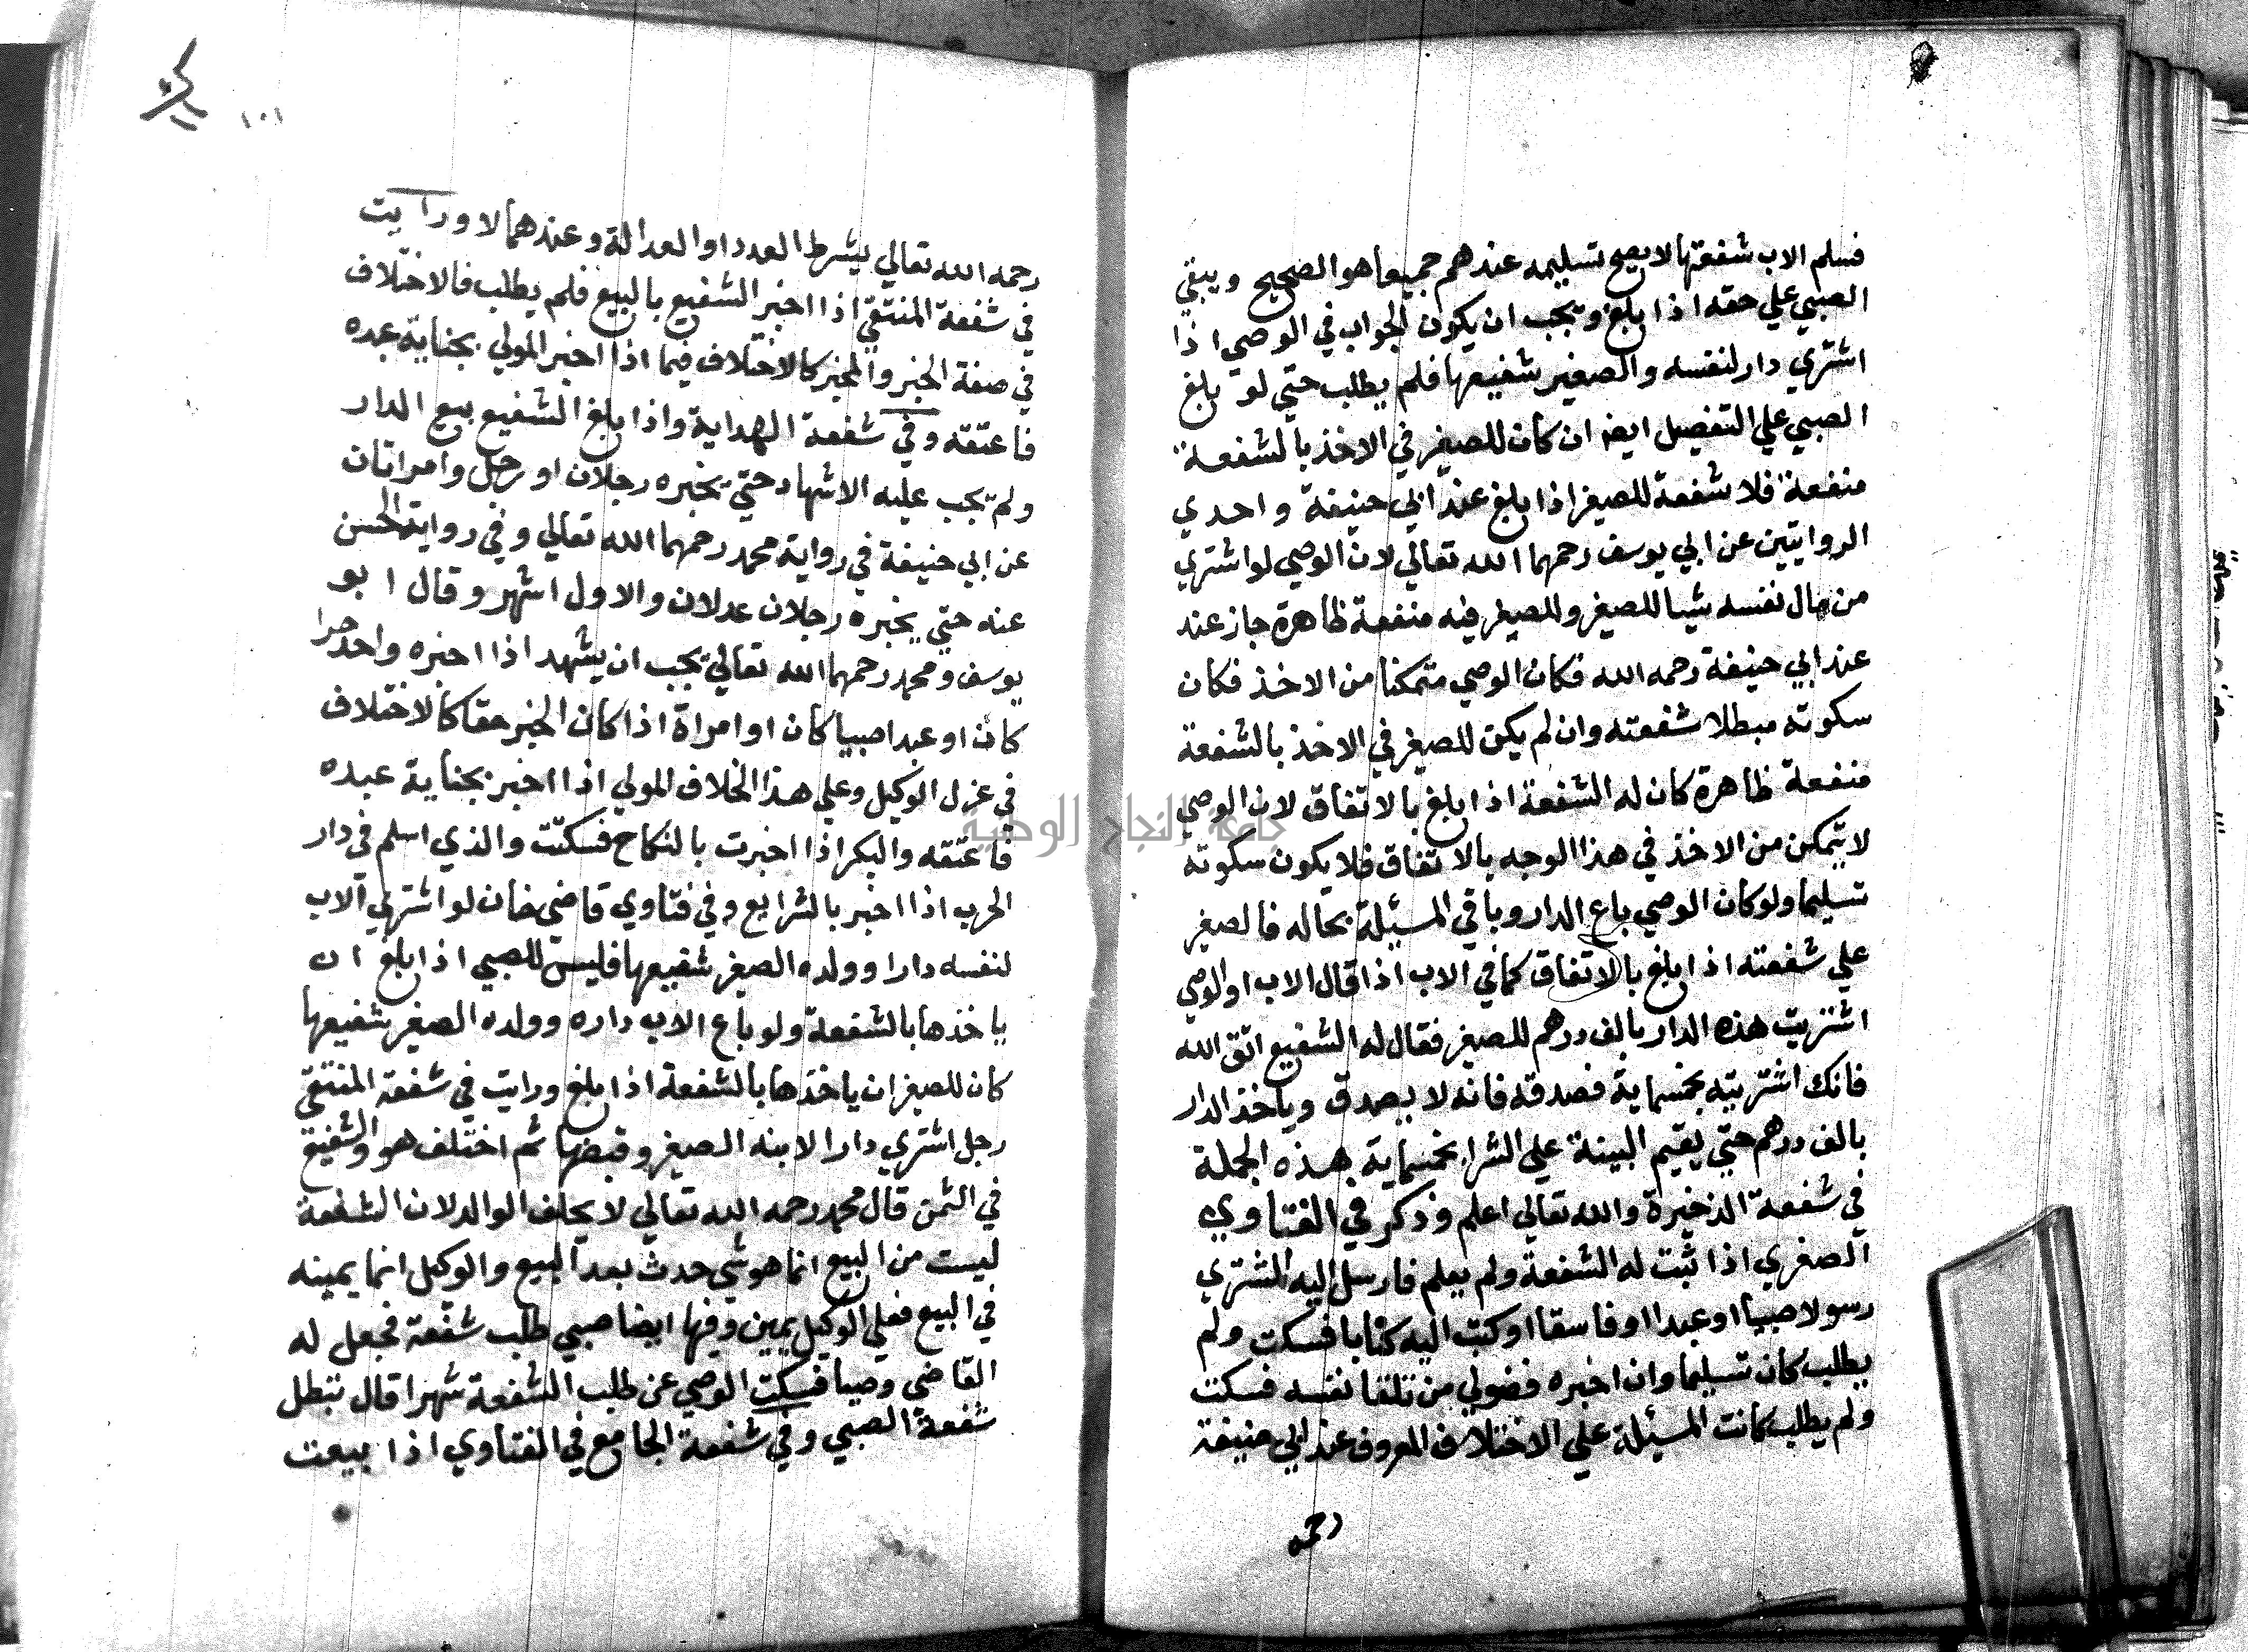 فسلم الاب شفعتها لا يصح تسليمه عندهم جميعا هو الصحيح ويبقي
الصبي علي حقه اذا بلغ ويجب ان يكون الجواب في الوصي اذا
اشتري دار لنفسه والصغير شفيعها فلم يطلب حتي لو بلغ
الصبي علي التفصيل ايضا ان كان للصغير في الاخذ بالشفعة
منفعة فلا شفعة للصغير اذا بلغ عند ابي حنيفة واحدي
الروايتين عن ابي يوسف رحمهما الله تعالي لان الوصي لو اشتري
من مال نفسه شيا للصغير وللصغير فيه منفعة ظاهرة جاز عند
عند ابي حنيفة رحمه الله فكان الوصي متمكنا من الاخذ فكان
سكوته مبطلا شفعته وان لم يكن للصغير في الاخذ بالشفعة
منفعة ظاهرة كان له الشفعة اذا بلغ بالاتفاق لان الوصي
لا يتمكن من الاخذ في هذا الوجه بالاتفاق فلا يكون سكوته
تسليما ولو كان الوصي باع الدار وباقي المسئلة بحاله فالصغير
علي شفعته اذا بلغ بالاتفاق كما في الاب اذا قال الاب او الوصي
اشتريت هذه الدار بالف درهم للصغير فقال له الشفيع اتق الله
فانك اشتريته بخمسماية فصدقه فانه لا يصدق وياخذ الدار
بالف درهم حتي يقيم البينة علي الشرا بخمسماية بهذه الجملة
في شفعة الذخيرة والله تعالي اعلم وذكر في الفتاوي
الصغري اذا ثبت له الشفعة ولم يعلم فارسل اليه المشتري
رسولا صبيا او عبدا او فاسقا او كتب اليه كتابا فسكت ولم
يطلب كان تسليما وان اخبره فضولي من تلقا نفسه فسكت
ولم يطلب كانت المسئلة علي الاختلاف المعروف عند ابي حنيفة
رحمه
١٠١
رحمه الله تعالي يشرط العدد او العدالة وعندهما لا ورايت
في شفعة المنتقي اذا اخبر الشفيع بالبيع فلم يطلب فالاختلاف
في صفة الخبر والمخبر كالاختلاف فيما اذا اخبر المولي بجناية عبده
فاعتقه وفي شفعة الهداية واذا بلغ الشفيع بيع الدار
ولم يجب عليه الاشهاد حتي يخبره رجلان او رجل وامراتان
عن ابي حنيفة في رواية محمد رحمهما الله تعالي وفي رواية الحسن
عنه حتي يخبره رجلان عدلان والاول اشهر وقال ابو
يوسف ومحمد رحمهما الله تعالي يجب ان يشهد اذا اخبره واحد حرا
كان او عبدا صبيا كان او امراة اذا كان الخبر حقا كالاختلاف
في عزل الوكيل وعلي هذا الخلاف المولي اذا اخبر بجناية عبده
فاعتقه والبكر اذا اخبرت بالنكاح فسكتت والذي اسلم في دار
الحرب اذا اخبر بالشرايع وفي فتاوي قاضي خان لو اشتري الاب
لنفسه دارا وولده الصغير شفيعها فليس للصبي اذا بلغ ان
ياخذها بالشفعة ولو باع الاب داره وولده الصغير شفيعها
كان للصغير ان ياخذها بالشفعة اذا بلغ ورايت في شفعة المنتقي
رجل اشتري دارا لابنه الصغير وقبضها ثم اختلف هو والشفيع
في الثمن قال محمد رحمه الله تعالي لا يحلف الوالد لان الشفعة
ليست من البيع انما هو شي حدث بعد البيع والوكيل انما يمينه
في البيع فعلي الوكيل يمين وفيها ايضا صبي طلب شفعة فجعل له
القاضي وصيا فسكت الوصي عن طلب الشفعة شهرا قال تبطل
شفعة الصبي وفي شفعة الجامع في الفتاوي اذا بيعت
جامعة النجاح الوطنية